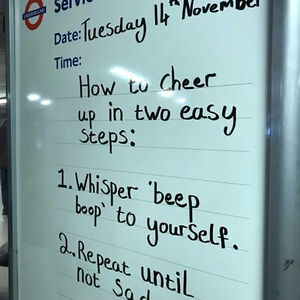 Service
Date: Tuesday 14th November
Time:
How to cheer
up in two easy
steps:
1. Whisper 'beep
boop' to yourself.
2. Repeat until
not sad